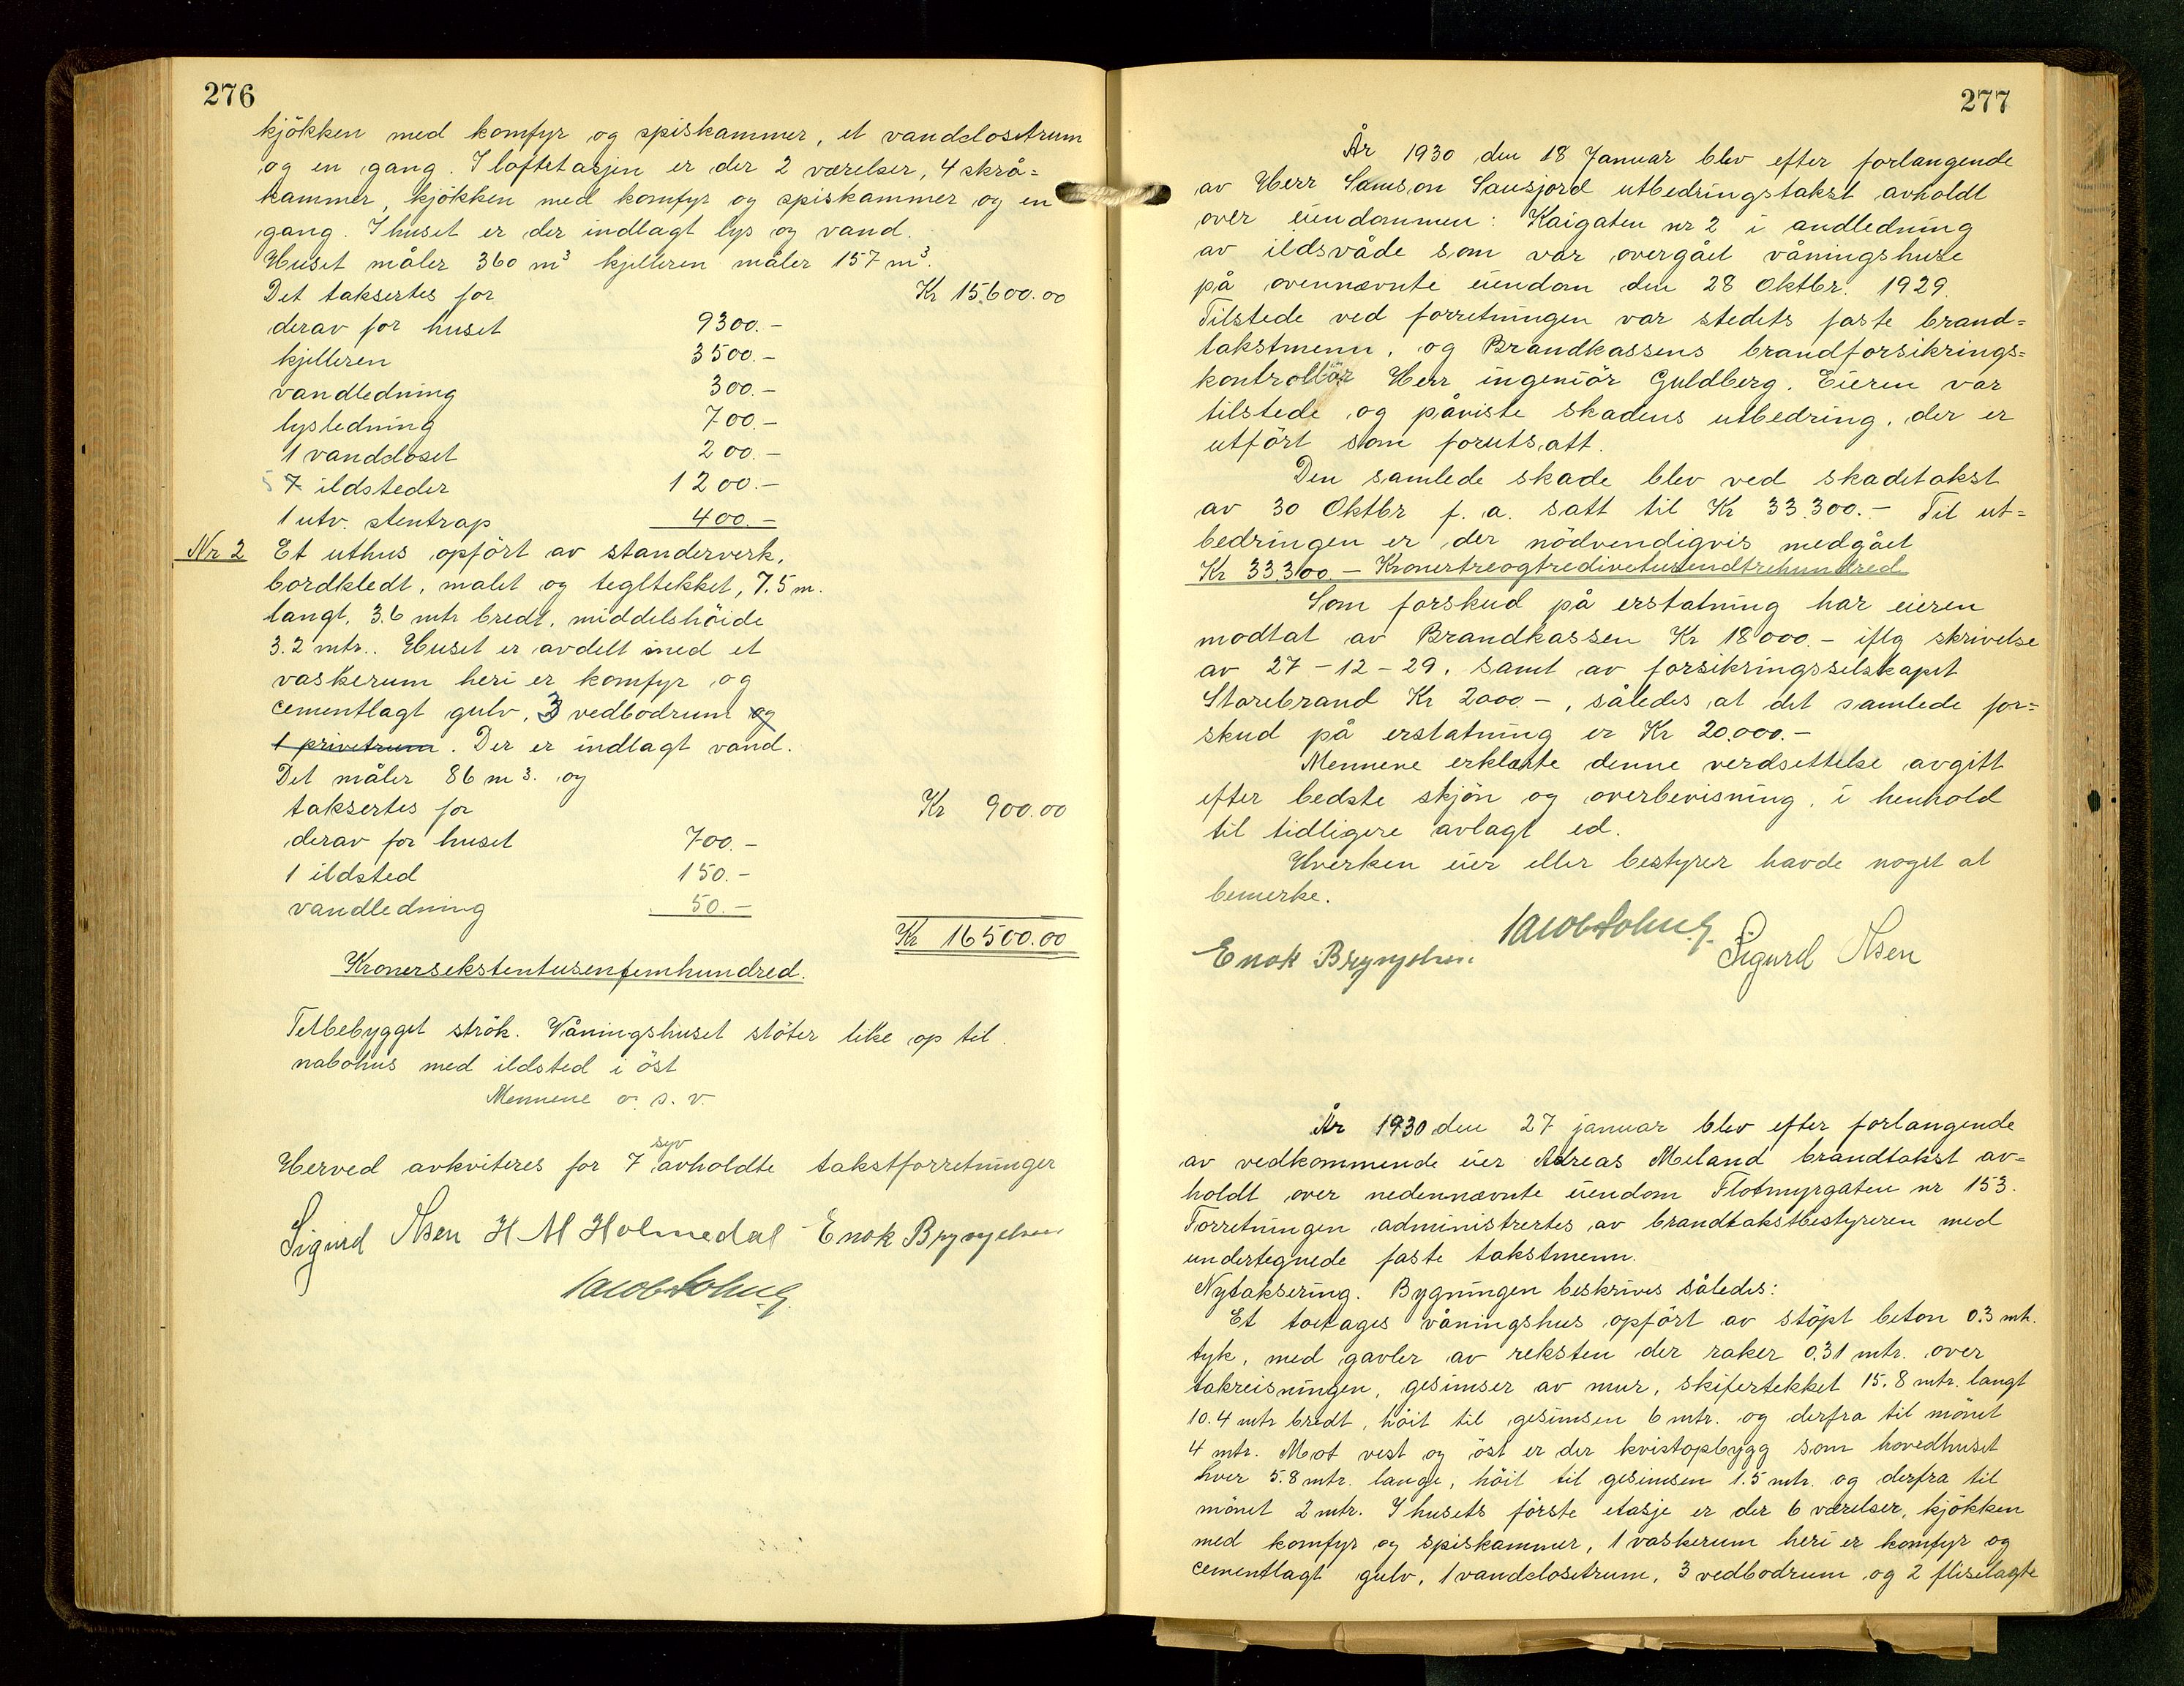 276
kjökken med komfyr og spiskammer, et vandclosetrum
og en gang. I loftetasjen er der 2 værelser, 4 skrå=
kammer, kjökken med komfyr og spiskammer og en
gang. I huset er der indlagt lys og vand.
Huset måler 360 m³ kjelleren måler 157 m³.
Det taksertes for Kr 15.600.00
derav for huset 9300.-
kjelleren 3500.-
vandledning 300.-
lysledning 700.-
1 vandcloset 200.-
5 7 ildsteder 1200.-
1 utv. stentrap 400.-
Nr 2 Et uthus opfört av standerverk,
bordkledt, malet og tegltekket, 7.5 m.
langt, 3.6 mtr bredt, middelshöide
3.2 mtr.. Huset er avdelt med et
vaskerum heri er komfyr og
cementlagt gulv, 3 vedbodrum og
1 privetrum. Der er indlagt vand.
Det måler 86 m³. og
taksertes for Kr 900.00
derav for huset 700.-
1 ildsted 150.-
vandledning 50.-
Kr 16500.00
Kronersekstentusenfemhundred.
Tetbebygget strök. Våningshuset stöter like op til
nabohus med ildsted i öst
Mennene o. s. v.
syv
Herved avkviteres for 7 avholdte takstforretninger
Sigurd Olsen H M Holmedal Enok Brynjelsen
277
År 1930 den 18 Januar blev efter forlangende
av Herr Samson Sausjord utbedringstakst avholdt
over eiendommen: Kaigaten nr 2 i andledning
av ildsvåde som var overgået våningshuse
på ovennævnte eiendom den 28 Oktbr. 1929.
Tilstede ved forretningen var stedets faste brand=
takstmenn, og Brandkassens brandforsikrings=
kontrollör Herr ingeniör Guldberg. Eieren var
tilstede og påviste skadens utbedring, der er
utfört som forutsatt.
Den samlede skade blev ved skadetakst
av 30 Oktbr f. a. satt til Kr 33.300.- Til ut=
bedringen er der nödvendigvis medgået
Kr 33.300 - Kronertreogtredivetusendtrehundred
Som forskud på erstatning har eieren
modtat av Brandkassen Kr 18000.- iflg skrivelse
av 27-12-29, samt av forsikringsselskapet
Storebrand Kr 2000-, således at det samlede for=
skud på erstatning er Kr 20.000.-
Mennene erklærte denne verdsettelse avgitt
efter bedste skjön og overbevisning, i henhold
til tidligere avlagt ed.
Hverken eier eller bestyrer havde noget at
bemerke.
Enok Brynjelsen Sigurd Olsen
År 1930 den 27 januar blev efter forlangende
av vedkommende eier Adreas Meland brandtakst av=
holdt over nedennævnte eiendom Flotmyrgaten nr 153.
Forretningen administrertes av brandtakstbestyreren med
undertegnede faste takstmenn.
Nytaksering. Bygningen beskrives således:
Et toetages våningshus opfört av stöpt beton 0.3 mtr.
tyk, med gavler av teksten der raker 0.31 mtr. over
takreisningen, gesimser av mur, skifertekket 15.8 mtr. langt
10.4 mtr bredt, höit til gesimsen 6 mtr. og derfra til mönet
4 mtr. Mot vest og öst er der kvistopbygg som hovedhuset
hver 5.8 mtr. lange, höit til gesimsen 1.5 mtr. og derfra til
mönet 2 mtr. I husets förste etasje er der 6 værelser, kjökken
med komfyr og spiskammer, 1 vaskerum heri er komfyr og
cementlagt gulv, 1 vandclosetrum, 3 vedbodrum og 2 fliselagte